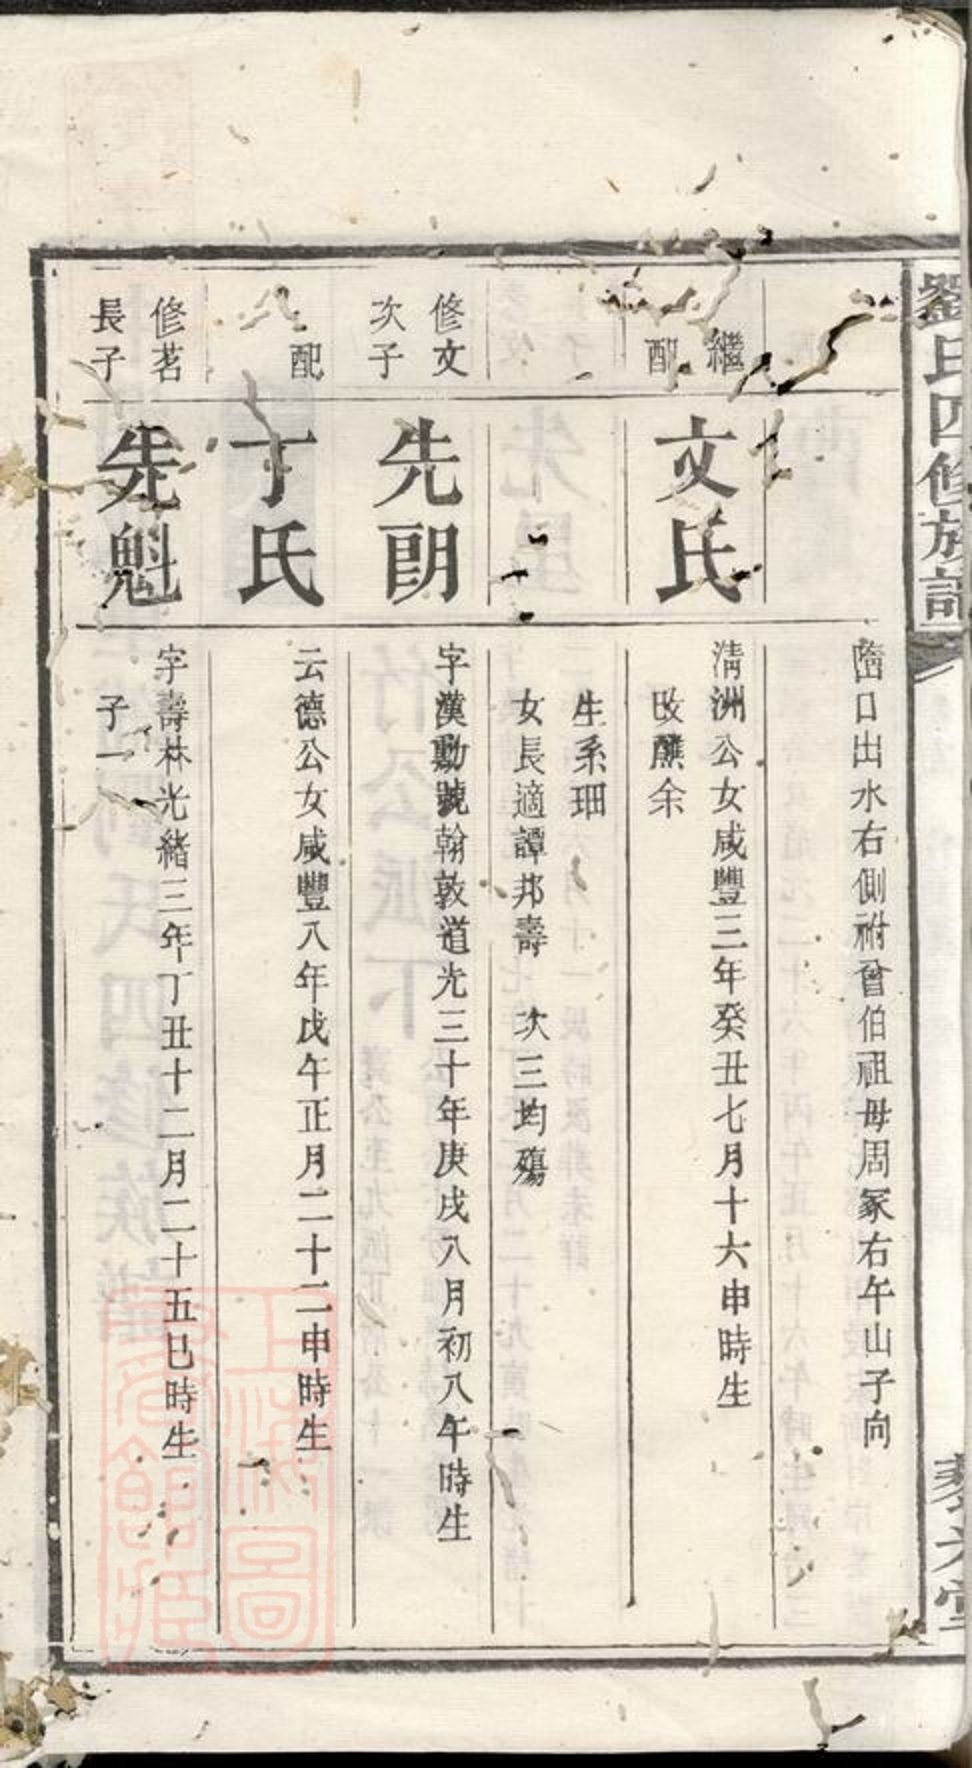 劉氏四修族譜
藜光堂
崙口出水右側祔曾伯祖母周冢右午山子向
繼配
文氏
清洲公女咸豐三年癸丑七月十六申時生
改醮余
生系珊
女長適譚邦壽 次三均殤
修文次子
先朗
字漢勳號翰敦道光三十年庚戌八月初八午時生
配
丁氏
云德公女咸豐八年戊午正月二十二申時生
修茗長子
先魁
字壽林光緒三年丁丑十二月二十五巳時生
子一
上海圖書館藏